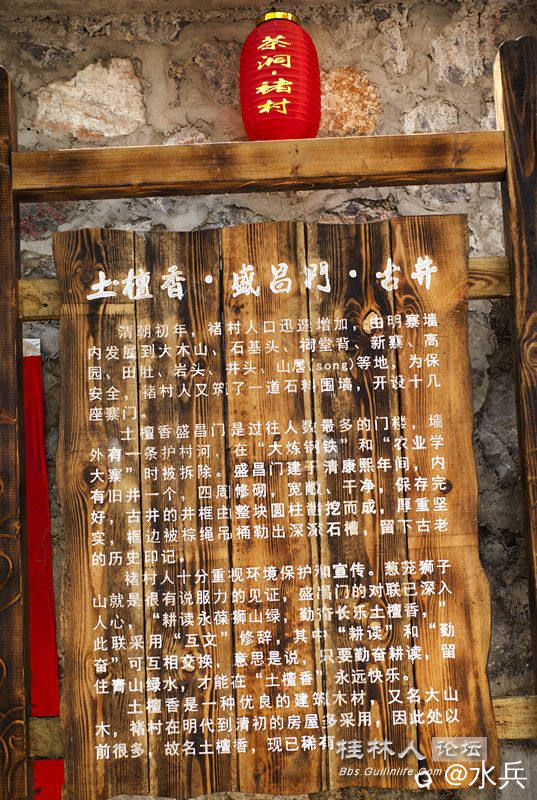 茶洞·褚村
土檀香·盛昌门·古井
清朝初年，褚村人口迅速增加，由明寨墙
内发展到大木山、石基头、祠堂背、新寨、高
园、田肚、岩头、井头、山(song)等地，为保
安全，褚村人又筑了一道石料围墙，开设十几
座寨门。
土檀香盛昌门是过往人数最多的门楼，墙
外有一条护村河，在“大炼钢铁”和“农业学
大寨”时被拆除。盛昌门建于清康熙年间，内
有旧井一个，四周修砌，宽敞、干净，保存完
好，古井的井框由整块圆柱凿挖而成，厚重坚
实，框边被棕绳吊桶勒出深深石槽，留下古老
的历史印记。
褚村人十分重视环境保护和宣传。葱茏狮子
山就是很有说服力的见证，盛昌门的对联已深入
人心，“耕读永葆狮山绿，勤奋长乐土檀香，”
此联采用“互文”修辞，其中“耕读”和“勤
奋”可互相交换，意思是说，只要勤奋耕读，留
住青山绿水，才能在“土檀香”永远快乐。
土檀香是一种优良的建筑木材，又名大山
木，褚村在明代到清初的房屋多采用，因此处以
前很多，故名土檀香，现已稀有
桂林人论坛
Bbs.Guilinlife.Com
@水兵